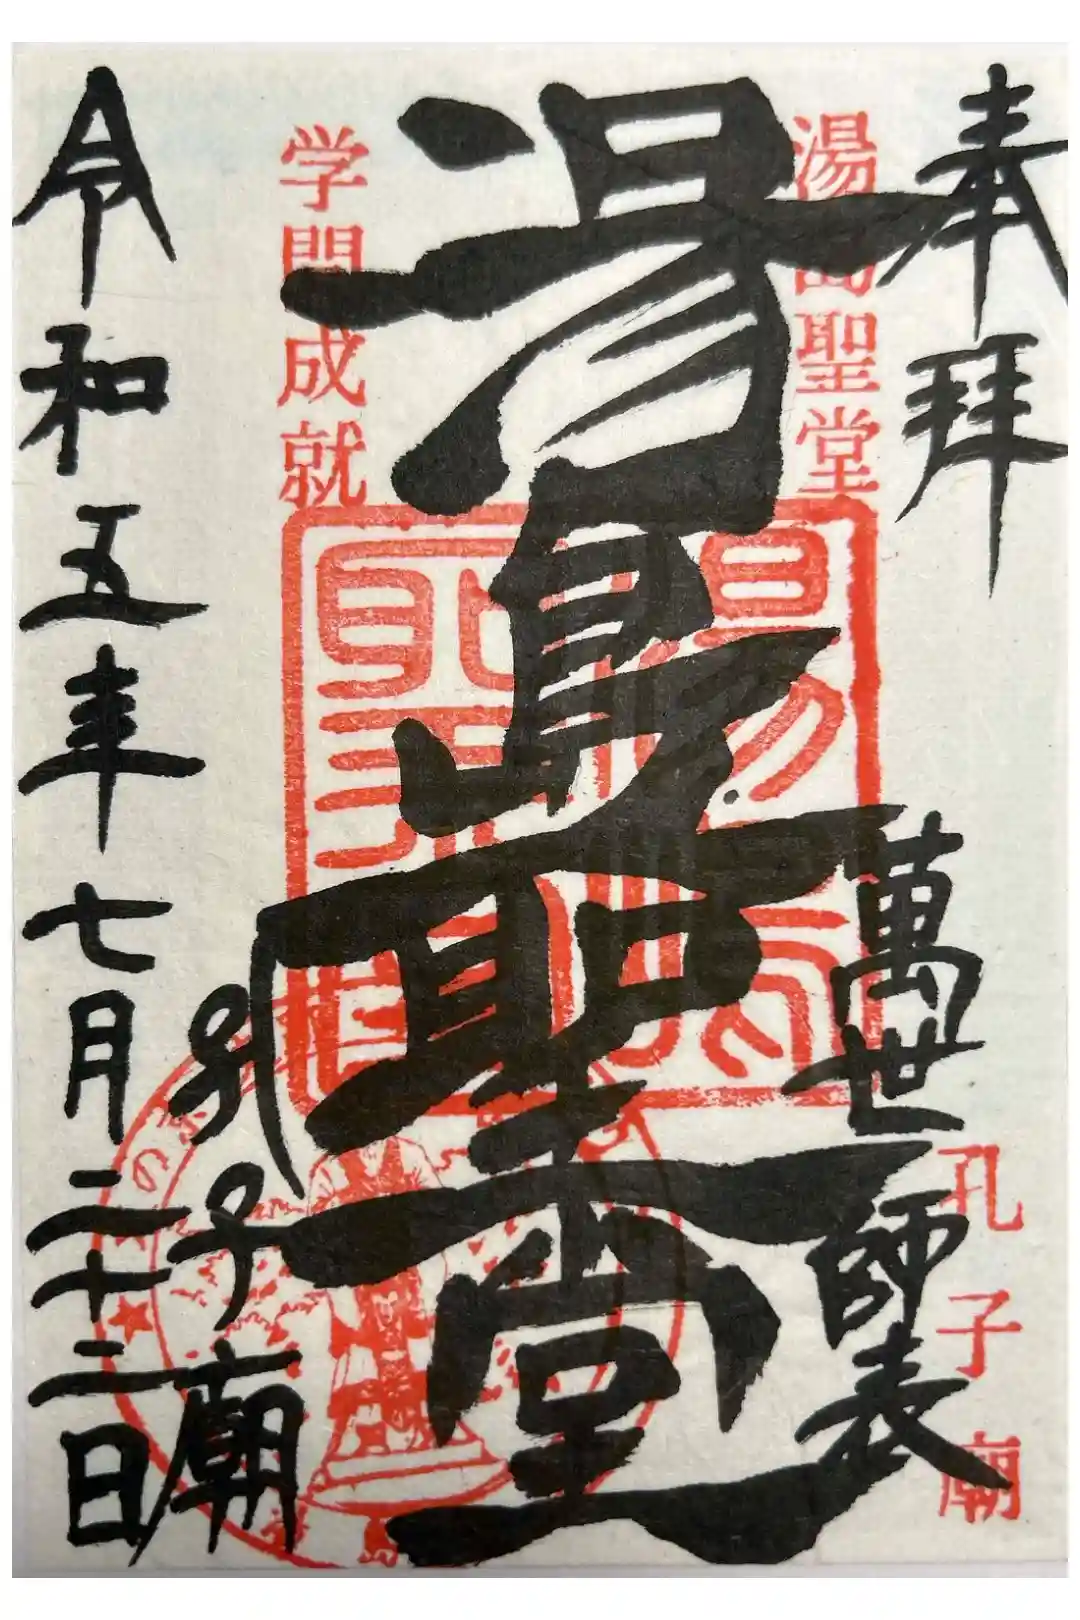 奉拝
湯島聖堂
萬世師表
孔子廟
湯島聖堂
学問成就
孔子廟
令和五年七月二十二日